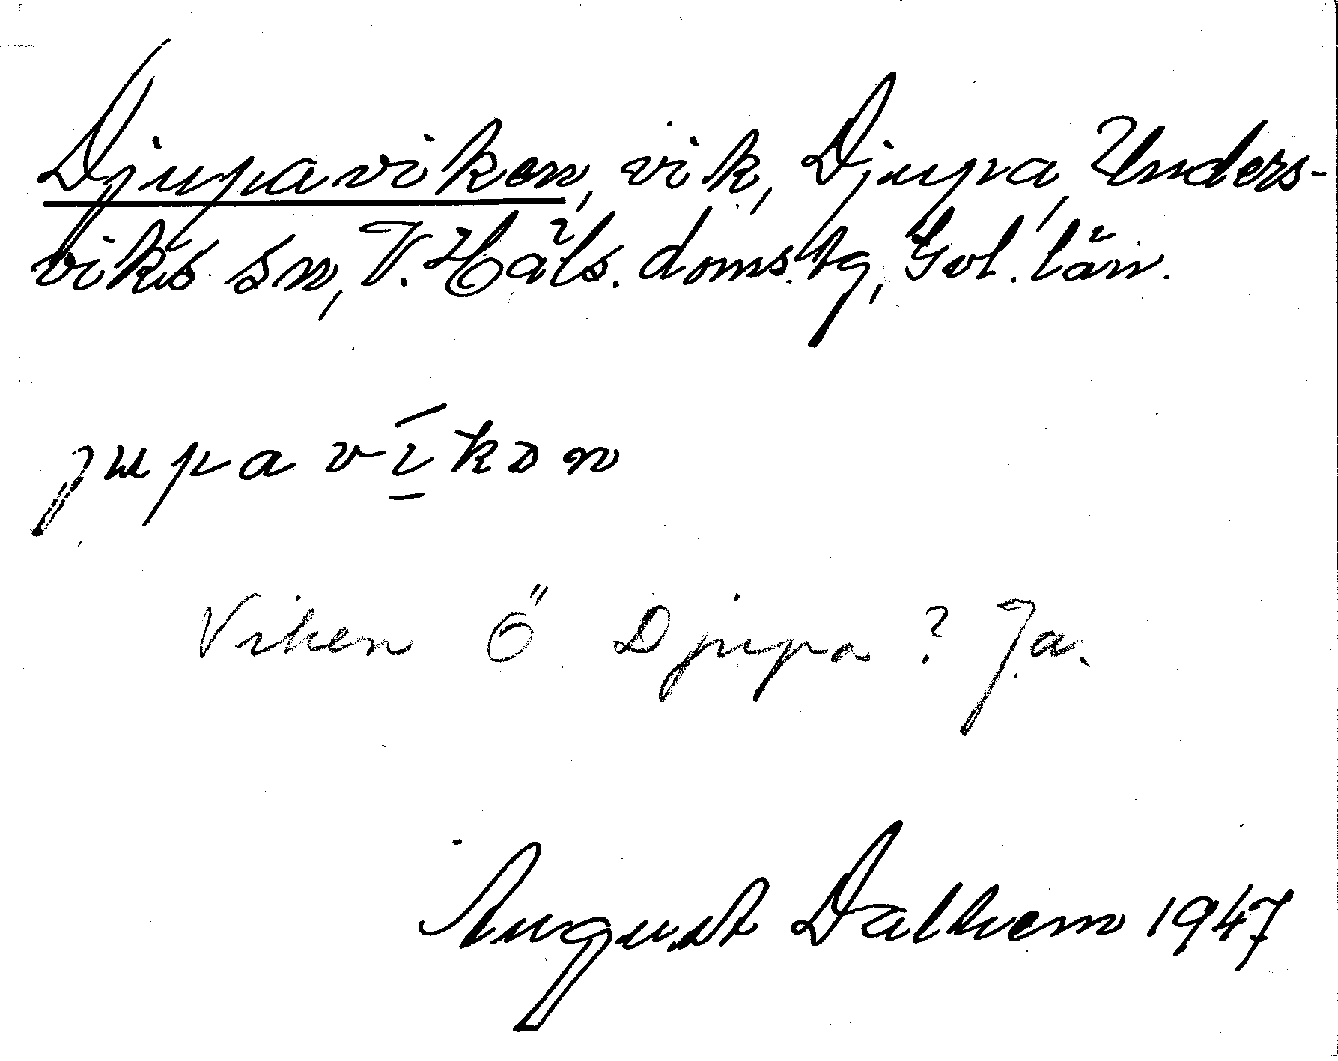 Djupaviken, vik, Djupa, Unders-
viks sn, V. Häls. doms.tg, Gvl. län.
jupavíkɔn
Viken Ö Djupa? Ja.
August Dalhem 1947